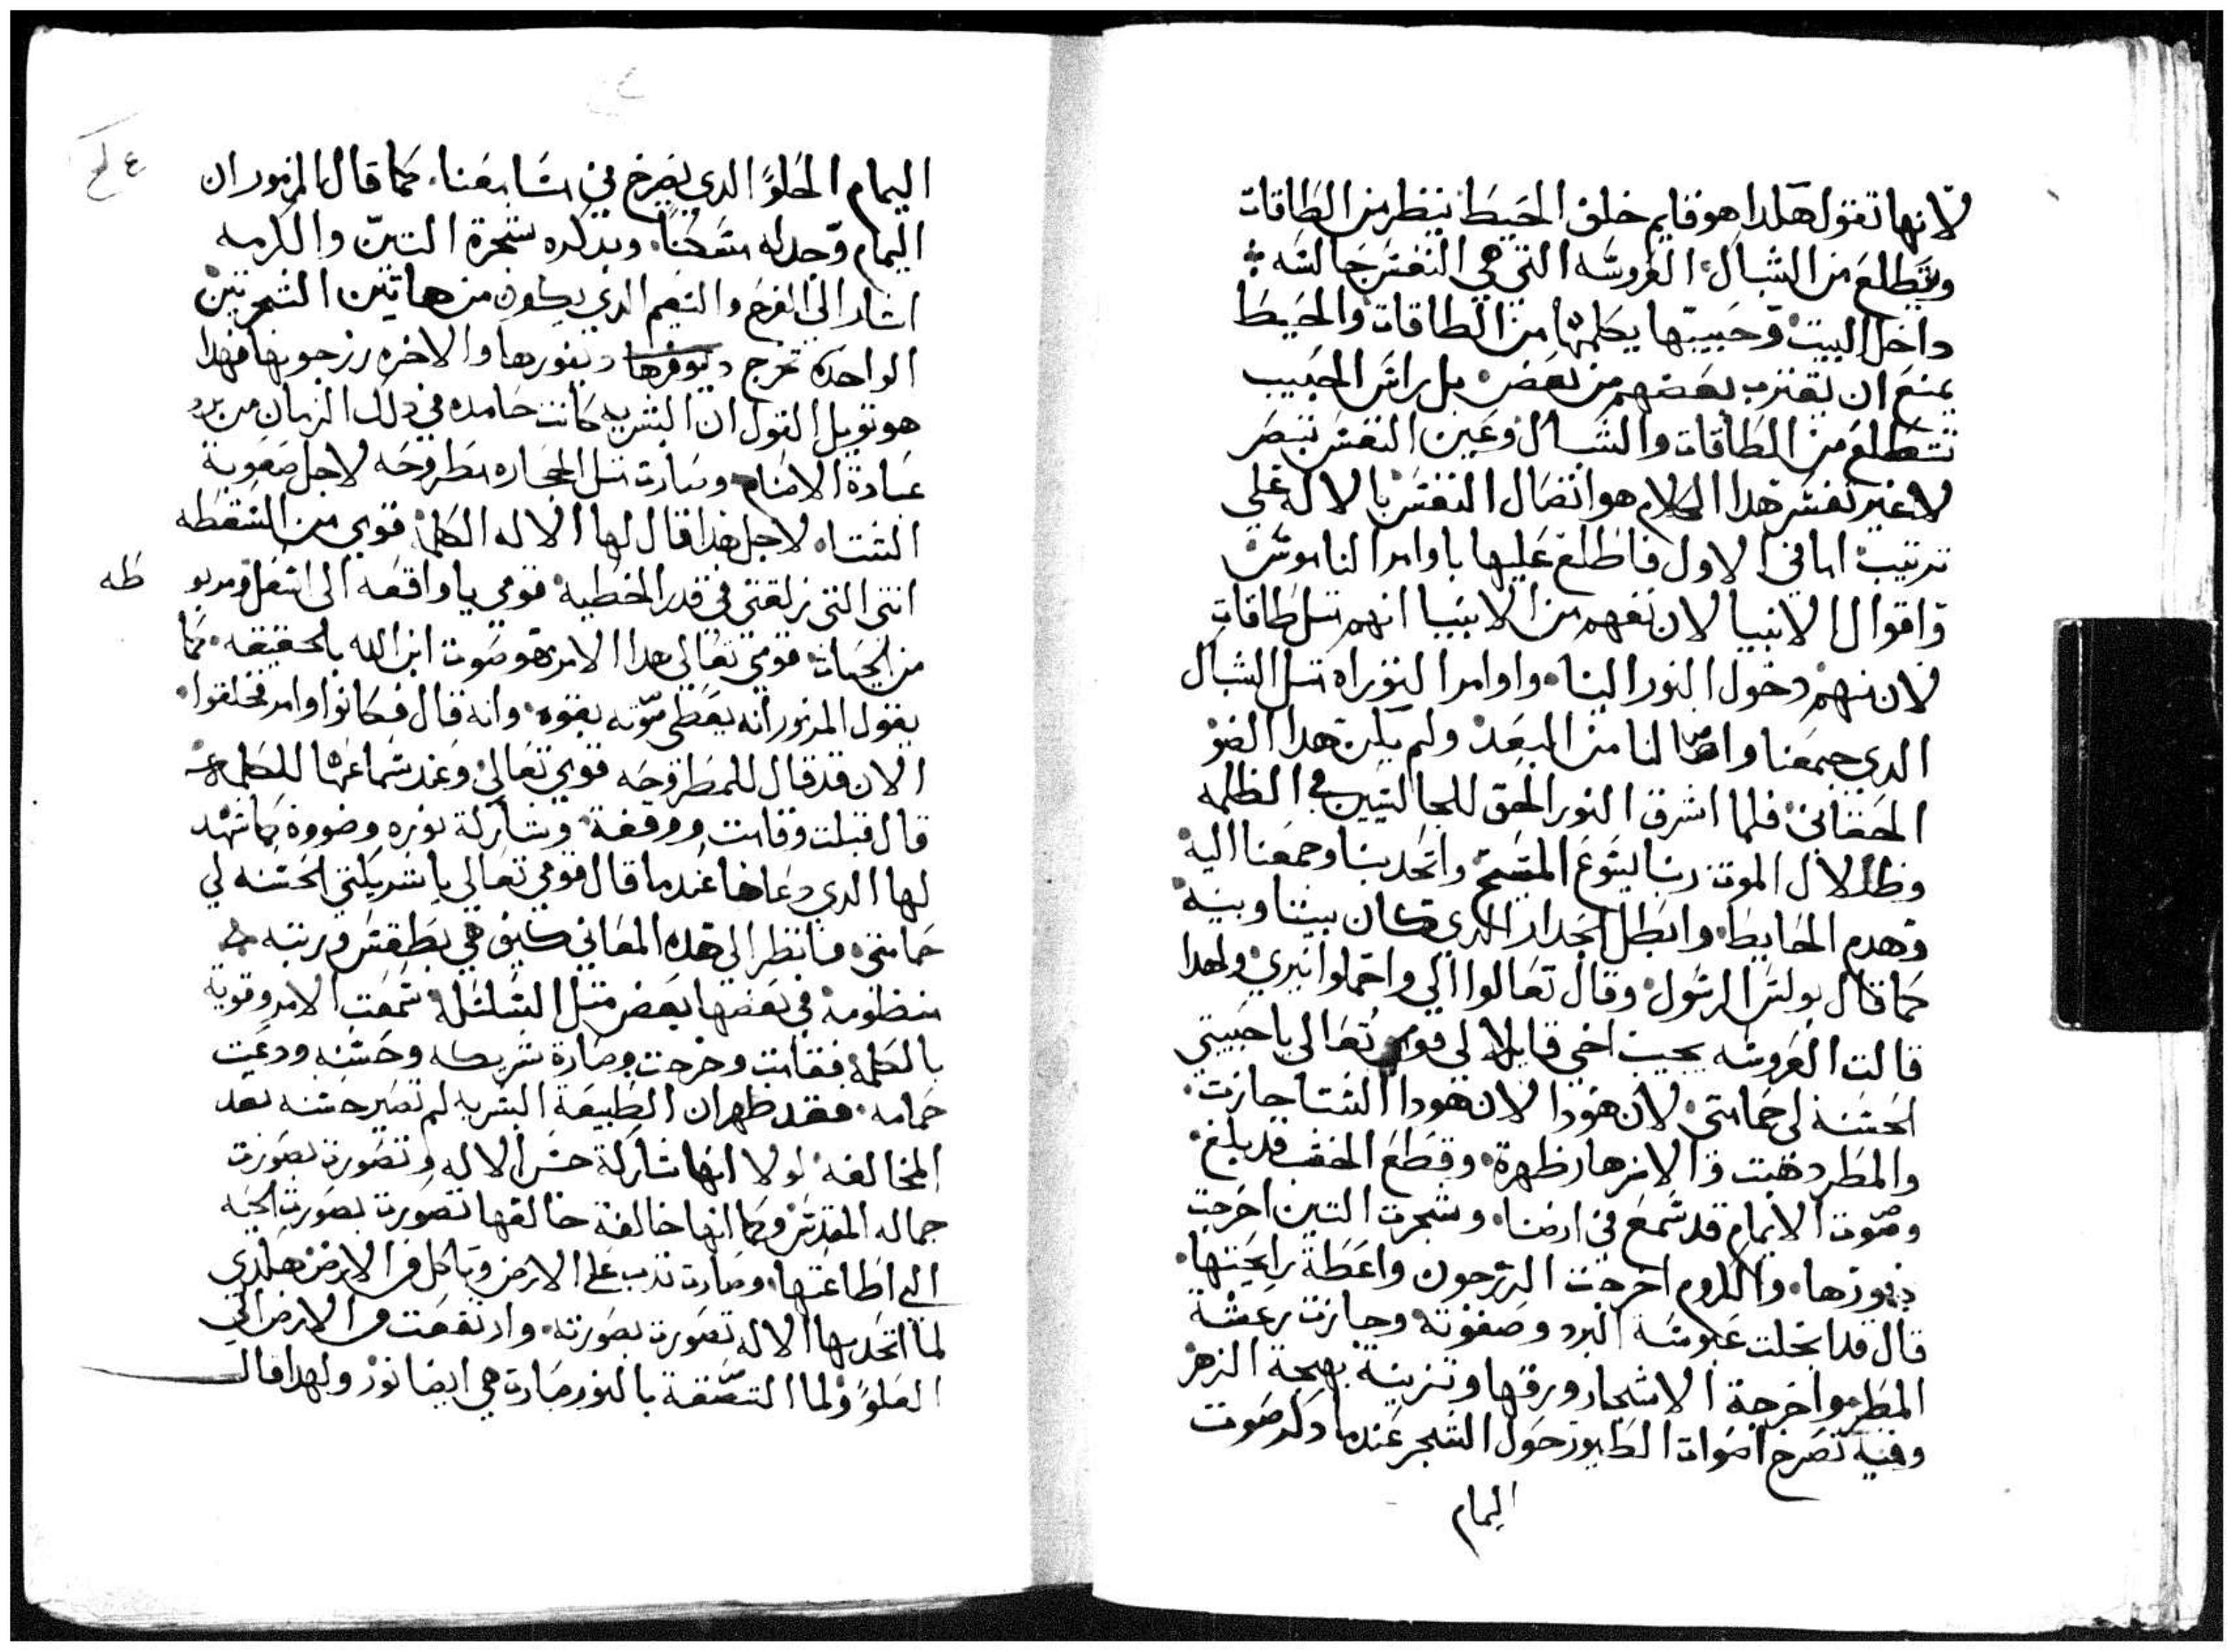 لانها تقول هكدا هو قايم خلف الحيط ينظر من الطاقات
ويتطلع من الشباك العروسه التي هي النفس جالسه
داخل البيت وحبيبها يكلمها من الطاقات والحيط
يمنع ان يقترب بعضهم من بعض بل راس الحبيب
تتطلع من الطاقات والشباك وعين النفس تبصر
لا غير تفسير هدا الكلام هو اتصال النفس بالاله على
ترتيب اما في الاول فاطلع عليها باوامر الناموس
واقوال الانبيا لان نفهم من الانبيا انهم مثل طاقات
لان منهم دخول النور الينا واوامر التوراه مثل الشباك
الدي جمعنا واصالنا من البعد ولم يكن هدا الضو
الحقاني فلما اشرق النور الحق للجالسين في الظلمه
وظلال الموت ربنا يسوع المسيح واتحد بنا وجمعنا اليه
وهدم الحايط وابطل الجدار الدي كان بيننا وبينه
كما قال بولس الرسول وقال تعالوا الي واحملوا نيري ولهدا
قالت العروسه يجيب اخي قايلا لي قومي تعالي يا حبيبتي
الحسنه لي حمامتي لان هودا لان هودا الشتا جازت
والمطر دهبت والازهار ظهرة وقطع الخشب قد بلغ
وصوت الايمام قد سمع في ارضنا وشجرت التين اخرجت
بنورها والكروم اخرجت الزرجون واعطة رايحتها
قال قد انحلت عبوسة البرد وصفوته وجازت رعشة
المطر واخرجة الاشجار ورقها وتزينة بهجة الزهر
وفيه تصرخ اصوات الطيور حول الشجر عندما دكر صوت
اليمام
اليمام الحلو الدي يفرخ في مسامعنا كما قال المزمور ان
اليمام وجد له مسكنا وبدكره شجرة التين والكرمه
اشار الى الفرح والنعيم الدي يكون من هاتين الشجرتين
الواحده تخرج بنورها والاخره زرجونها فهدا
هو تويل القول ان البشريه كانت جامده في دلك الزمان من برد
عبادة الاصنام وصارت مثل الحجاره مطروحه لاجل صعوبة
الشتاء لاجل هدا قال لها الاله الكلمة قومي من السقطه
انتي التي زلقتي في قدر الخطيه قومي يا واقعه الى اسفل ومربو
طه
من الحيات قومي تعالي هدا الامر هو صوت ابن الله بالحقيقه كما
يقول المزمور انه يعطي صوته بقوه وانه قال فكانوا وامر فخلقوا
الان قد قال للمطروحه قومي تعالي وعند سماعها للكلمه
قال قبلت وقامت ووقفة وشاركة نوره وضووه كما شهد
لها الدي دعاها عندما قال قومي تعالي يا شريكتي الحسنه لي
حمامتي فانظر الى هده المعاني كيف هي بطقس ورتبه
منظومه في بعضها بعض مثل السلسله سمعت الامر وقوية
بالكلمة فقامت وخرجت وصارة شريكه وحسنه ودعيت
حمامه فقد ظهر ان الطبيعة البشريه لم تصير حسنه بعد
المخالفه لولا انها شاركة حسن الاله وتصورت بصورت
جماله المقدس وكما انها خالفة خالقها تصورت بصورت الحيه
الي اطاعتها وصارت تدب على الارض وتاكل من الارض هكدي
لما اتحد بها الاله تصورت بصورته وارتفعت من الارض الي
العلو ولما التصقة بالنور صارت هي ايضا نور ولهدا قال